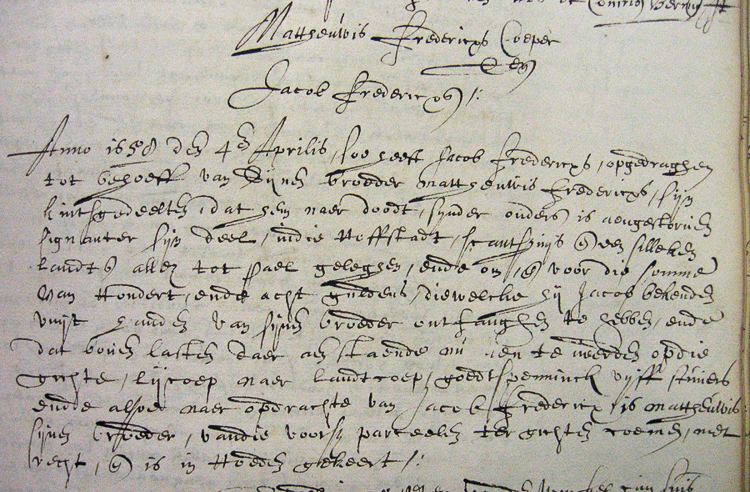 Mattheuwis Fredericxs Coeper
Teg
Jacob Fredericxs /:
Anno 1658 den 4en Aprilis, soo heeft Jacob Fredericxs, opgedraghen
tot behoeff van Sijnen broeder Mattheuwis Fredericxs, sijn
kintsgedeelten, dat hem naer doodt, sijnder ouders is aengestorven
signanter sijn deel, indie Hoffstadt, schanshuijs een silleken
landts allen tot Pael geleghen, ende om, voor die somme
van hondert, ende acht guldens, diewelcke hij Jacob bekenden
vuijt handen van sijnen broeder ontfanghen te hebben, ende
dat boven lasten daer aen staende nu aen te werden op die
gichte, lijcoep naer landtcoep, goedtspenninck vijff stuivers
ende alsoe naer opdrachte van Jacob Fredericx is Mattheuwis
sijnen broeder, vandie voors. parceelen ter gichten coemen, met
recht, is in Hoeden gekeert /: